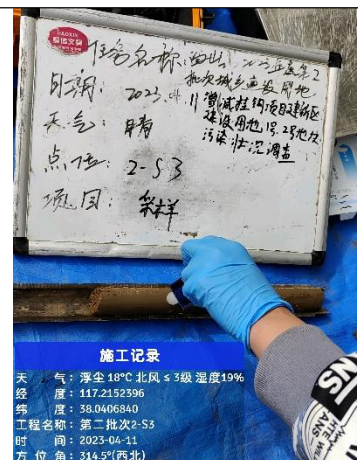 任务名称:
2023年度第2
批次城乡建设用地
增减挂钩项目建新区
建设用地1号、2号地块
污染状况调查
日期: 2023.04.11
天气: 晴
点位: 2-S3
项目: 采样
施工记录
天 气: 浮尘 18℃ 北风 ≤ 3级 湿度19%
经 度: 117.2152396
纬 度: 38.0406840
工程名称: 第二批次2-S3
时 间: 2023-04-11
方 位 角: 314.5°(西北)